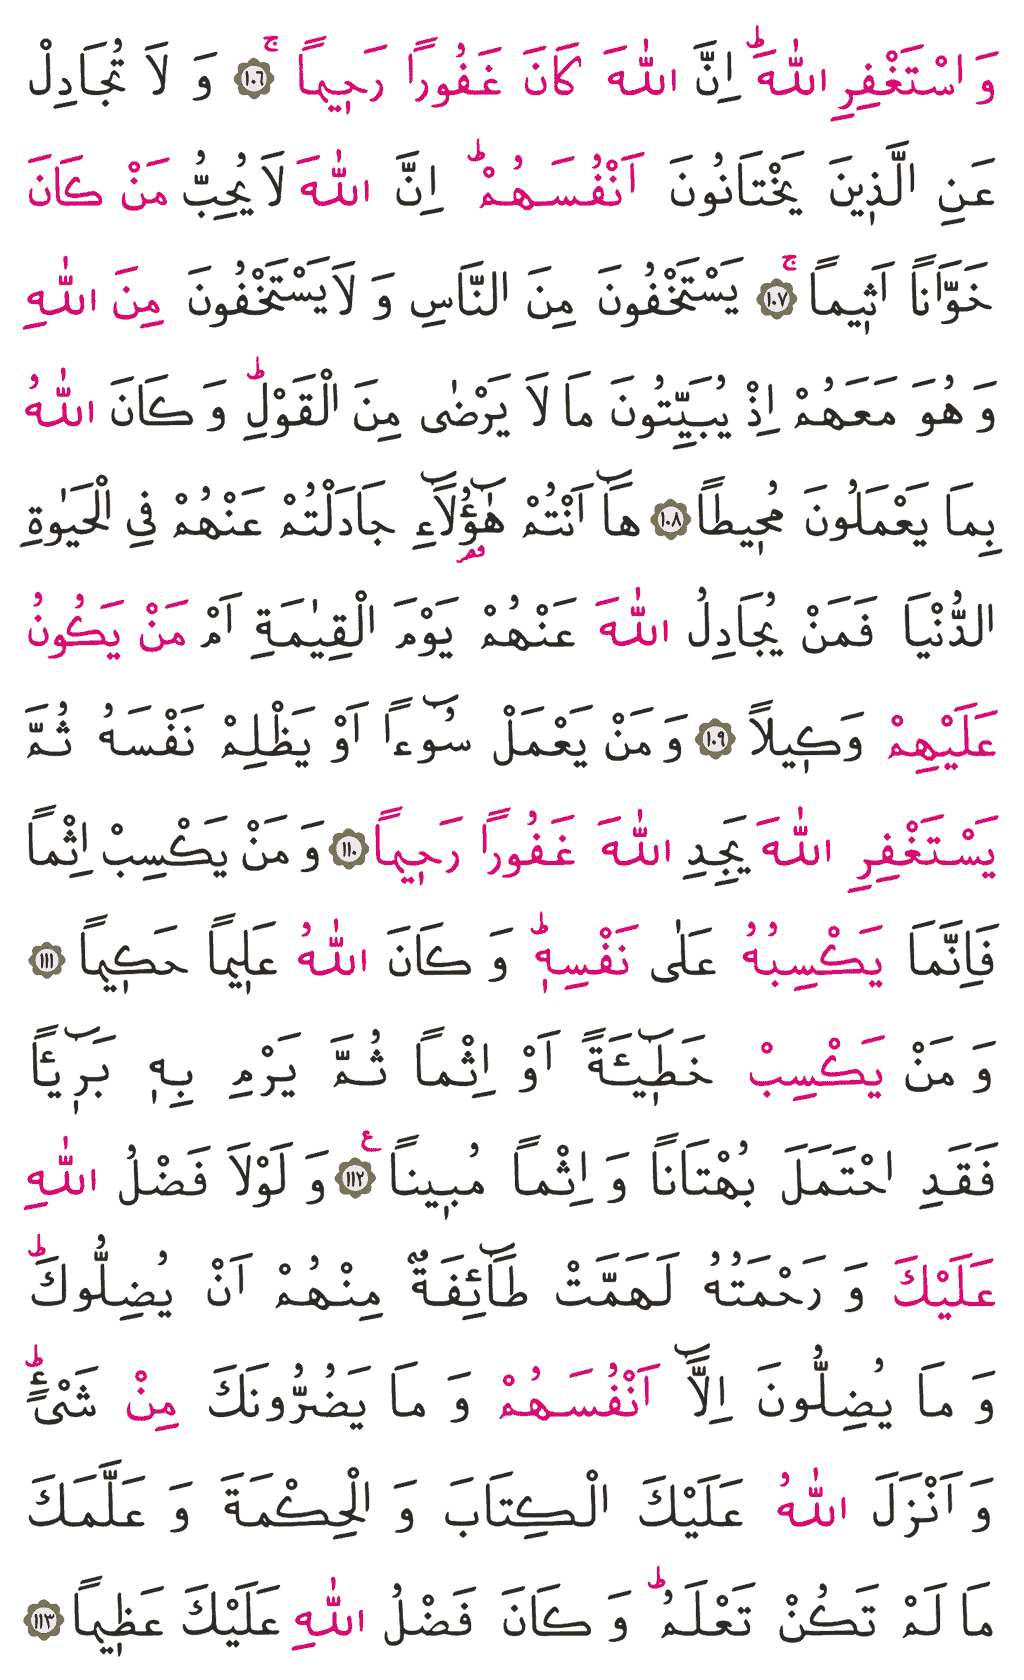 وَ اسْتَغْفِرِ اللّٰهَؕ اِنَّ اللّٰهَ كَانَ غَفُوراً رَحٖيماًۚ ﴿١٠٦﴾ وَ لَا تُجَادِلْ
عَنِ الَّذٖينَ يَخْتَانُونَ اَنْفُسَهُمْؕ اِنَّ اللّٰهَ لَا يُحِبُّ مَنْ كَانَ
خَوَّاناً اَثٖيماًۚ ﴿١٠٧﴾ يَسْتَخْفُونَ مِنَ النَّاسِ وَ لَا يَسْتَخْفُونَ مِنَ اللّٰهِ
وَ هُوَ مَعَهُمْ اِذْ يُبَيِّتُونَ مَا لَا يَرْضٰى مِنَ الْقَوْلِؕ وَ كَانَ اللّٰهُ
بِمَا يَعْمَلُونَ مُحٖيطاً ﴿١٠٨﴾ هَٓا اَنْتُمْ هٰٓؤُ۬لَٓاءِ جَادَلْتُمْ عَنْهُمْ فِي الْحَيٰوةِ
الدُّنْيَا فَمَنْ يُجَادِلُ اللّٰهَ عَنْهُمْ يَوْمَ الْقِيٰمَةِ اَمْ مَنْ يَكُونُ
عَلَيْهِمْ وَكٖيلاً ﴿١٠٩﴾ وَ مَنْ يَعْمَلْ سُٓوءاً اَوْ يَظْلِمْ نَفْسَهُ ثُمَّ
يَسْتَغْفِرِ اللّٰهَ يَجِدِ اللّٰهَ غَفُوراً رَحٖيماً ﴿١١٠﴾ وَ مَنْ يَكْسِبْ اِثْماً
فَاِنَّمَا يَكْسِبُهُ عَلٰى نَفْسِهٖؕ وَ كَانَ اللّٰهُ عَلٖيماً حَكٖيماً ﴿١١١﴾
وَ مَنْ يَكْسِبْ خَطٖٓيـَٔةً اَوْ اِثْماً ثُمَّ يَرْمِ بِهٖ بَرٖٓيـٔاً
فَقَدِ احْتَمَلَ بُهْتَاناً وَ اِثْماً مُبٖيناً۟ ﴿١١٢﴾ وَ لَوْلَا فَضْلُ اللّٰهِ
عَلَيْكَ وَ رَحْمَتُهُ لَهَمَّتْ طَٓائِفَةٌ مِنْهُمْ اَنْ يُضِلُّوكَؕ
وَ مَا يُضِلُّونَ اِلَّٓا اَنْفُسَهُمْ وَ مَا يَضُرُّونَكَ مِنْ شَيْءٍؕ
وَ اَنْزَلَ اللّٰهُ عَلَيْكَ الْكِتَابَ وَ الْحِكْمَةَ وَ عَلَّمَكَ
مَا لَمْ تَكُنْ تَعْلَمُؕ وَ كَانَ فَضْلُ اللّٰهِ عَلَيْكَ عَظٖيماً ﴿١١٣﴾